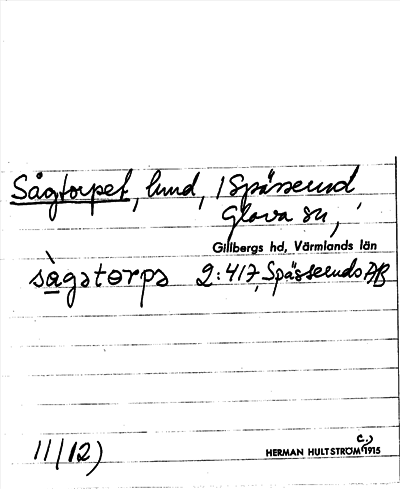 Sågtorpet, lund, i Spässerud
Glava sn,
Gillbergs hd, Värmlands län
sàgstɵrps 2:417, Spässeruds AB
11/12)
c.)
HERMAN HULTSTRÖM 1915